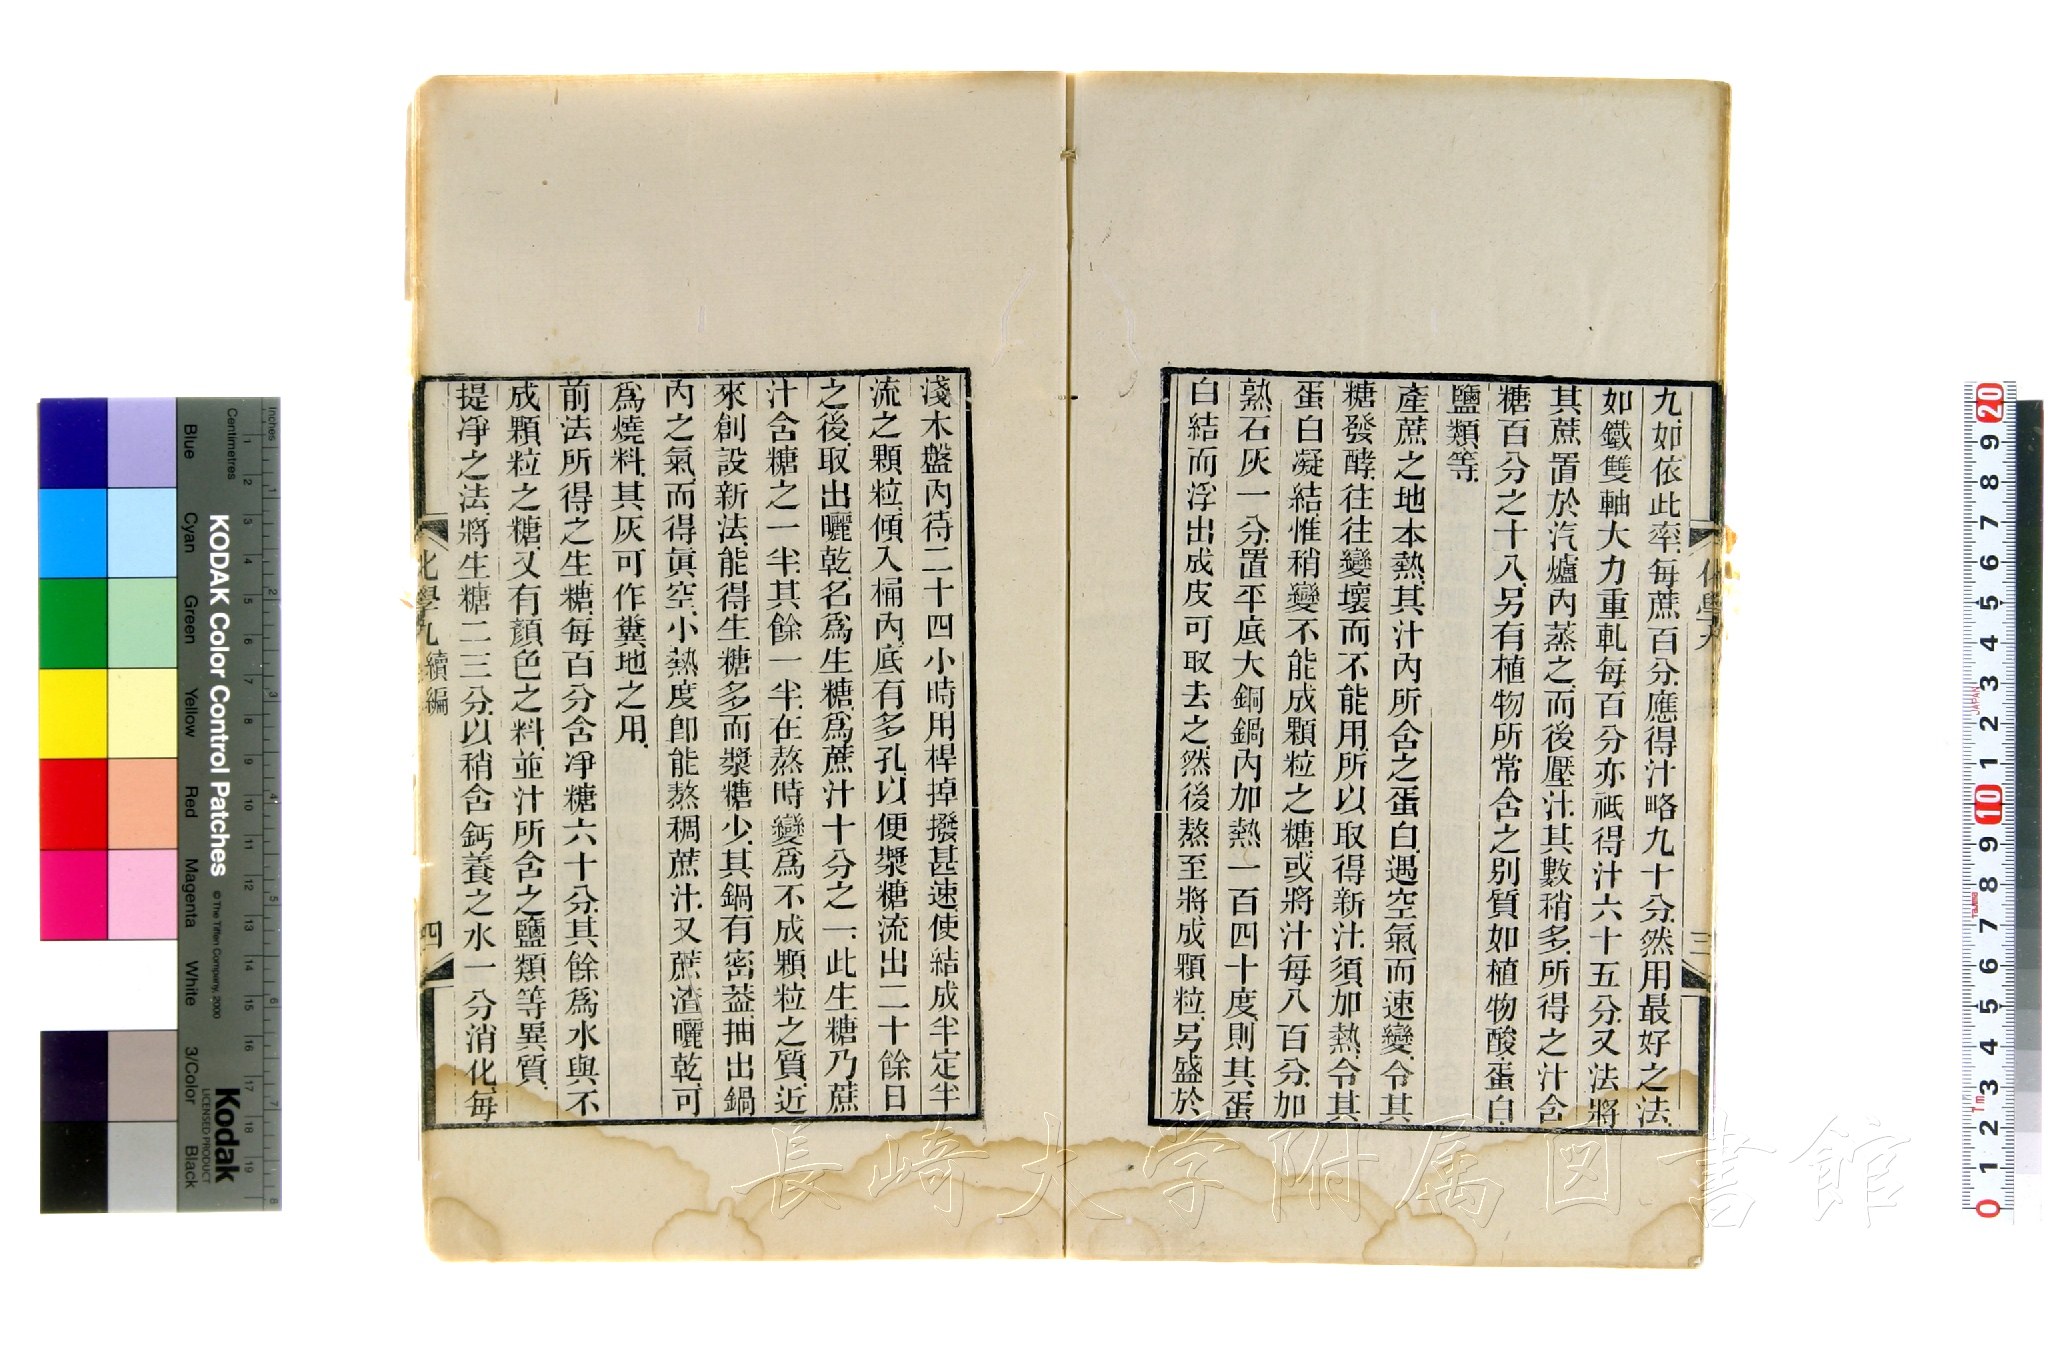 九如依此率每蔗百分應得汁略九十分然用最好之法
如鐵雙軸大力重軋每百分亦祗得汁六十五分又法將
其蔗置於汽爐內蒸之而後壓汁其數稍多所得之汁含
糖百分之十八另有植物所常含之別質如植物酸蛋白
鹽類等
產蔗之地本熱其汁內所含之蛋白遇空氣而速變令其
糖發酵往往變壞而不能用所以取得新汁須加熱令其
蛋白凝結惟稍變不能成顆粒之糖或將汁每八百分加
熟石灰一分置平底大銅鍋內加熱一百四十度則其蛋
白結而浮出成皮可取去之然後熬至將成顆粒另盛於
淺木盤內待二十四小時用桿掉撥甚速使結成半定半
流之顆粒傾入桶內底有多孔以便漿糖流出二十餘日
之後取出曬乾名爲生糖爲蔗汁十分之一此生糖乃蔗
汁含糖之一半其餘一半在熬時變爲不成顆粒之質近
來創設新法能得生糖多而漿糖少其鍋有密葢抽出鍋
內之氣而得眞空小熱度卽能熬稠蔗汁又蔗渣曬乾可
爲燒料其灰可作糞地之用
前法所得之生糖每百分含淨糖六十分其餘爲水與不
成顆粒之糖又有顏色之料並汁所含之鹽類等異質
提淨之法將生糖二三分以稍含鈣養之水一分消化每
化學九 續編
四
三
長崎大学附属図書館
KODAK Color Control Patches
© The Tiffen Company, 2000
Kodak
LICENSED PRODUCT
Inches
Centimetres
Blue
Cyan
Green
Yellow
Red
Magenta
White
3/Color
Black